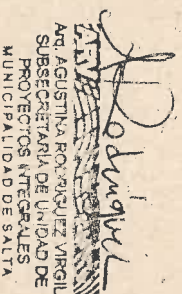 Rodríguez
Arq. AGUSTINA RODRIGUEZ VIRGIL
SUBSECRETARIA DE UNIDAD DE
PROYECTOS INTEGRALES
MUNICIPALIDAD DE SALTA